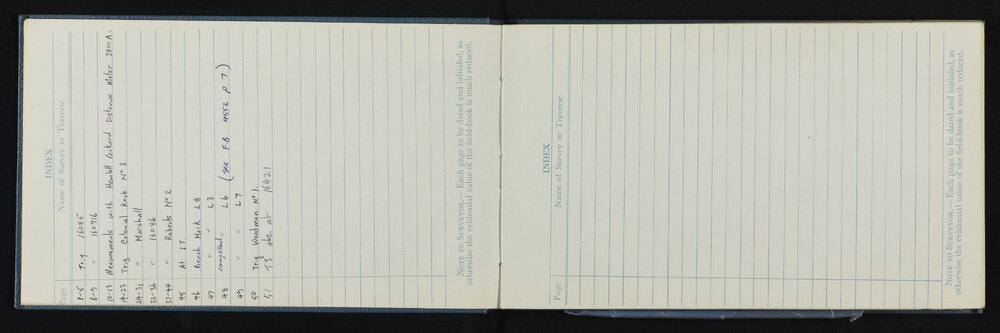 INDEX
Page Name of Survey or Traverse
1-5 Trig 16085
6-9 " 160916
10-13 Measurements with Hewlett Packard Distance Meter 3800A.
14-23 Trig Colonial Knob Nº 3
24-31 " Marshall
32-36 " 16086
37-44 " Roberts Nº 2
45 At I.T.
46 Bench Mark L8
47 " L3
48 cancelled " L6 (see F.B. 4552 p. 7)
49 " L7
50 Trig Woodman Nº 1.
51 TS obs. at 16421
NOTE TO SURVEYOR.— Each page to be dated and initialed, as
otherwise the evidential value of the field-book is much reduced.
INDEX
Page Name of Survey or Traverse
NOTE TO SURVEYOR.— Each page to be dated and initialed, as
otherwise the evidential value of the field-book is much reduced.